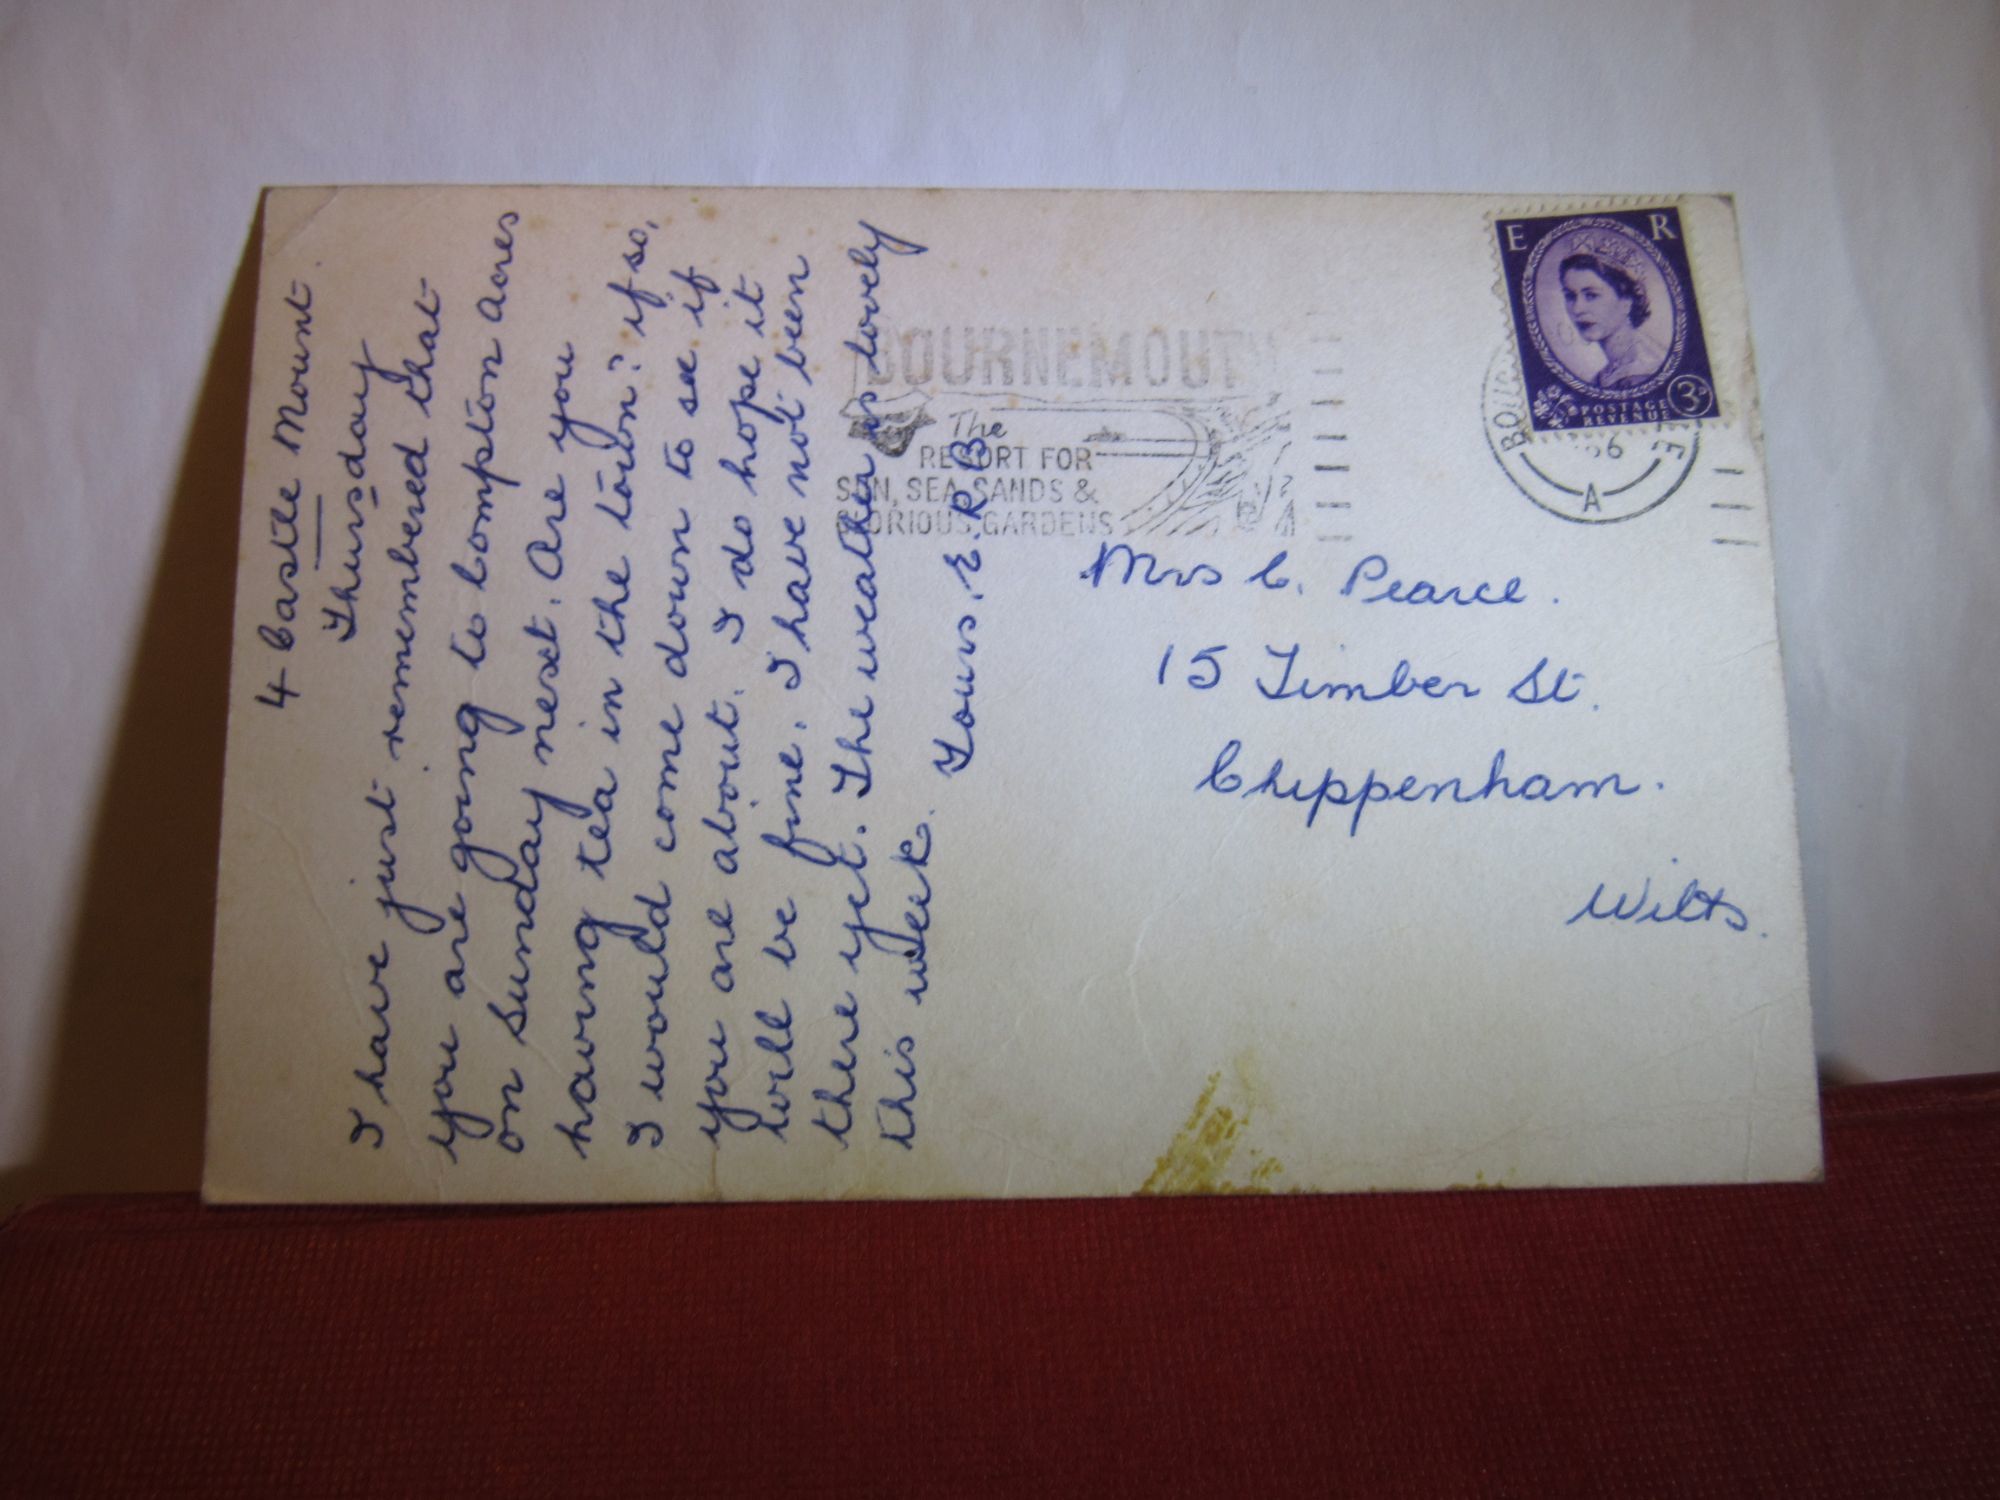 4 Castle Mount.
Thursday
I have just remembered that
you are going to Compton Acres
on Sunday next. Are you
having tea in the town? if so,
I would come down to see if
you are about. I do hope it
will be fine. I have not been
there yet. The weather is lovely
this week. Yours. E. R. B.
BOURNEMOUTH
The
RESORT FOR
SUN, SEA, SANDS &
GLORIOUS GARDENS
E R
POSTAGE
REVENUE
3D
A
Mrs C. Pearce.
15 Timber St.
Chippenham.
Wilts.